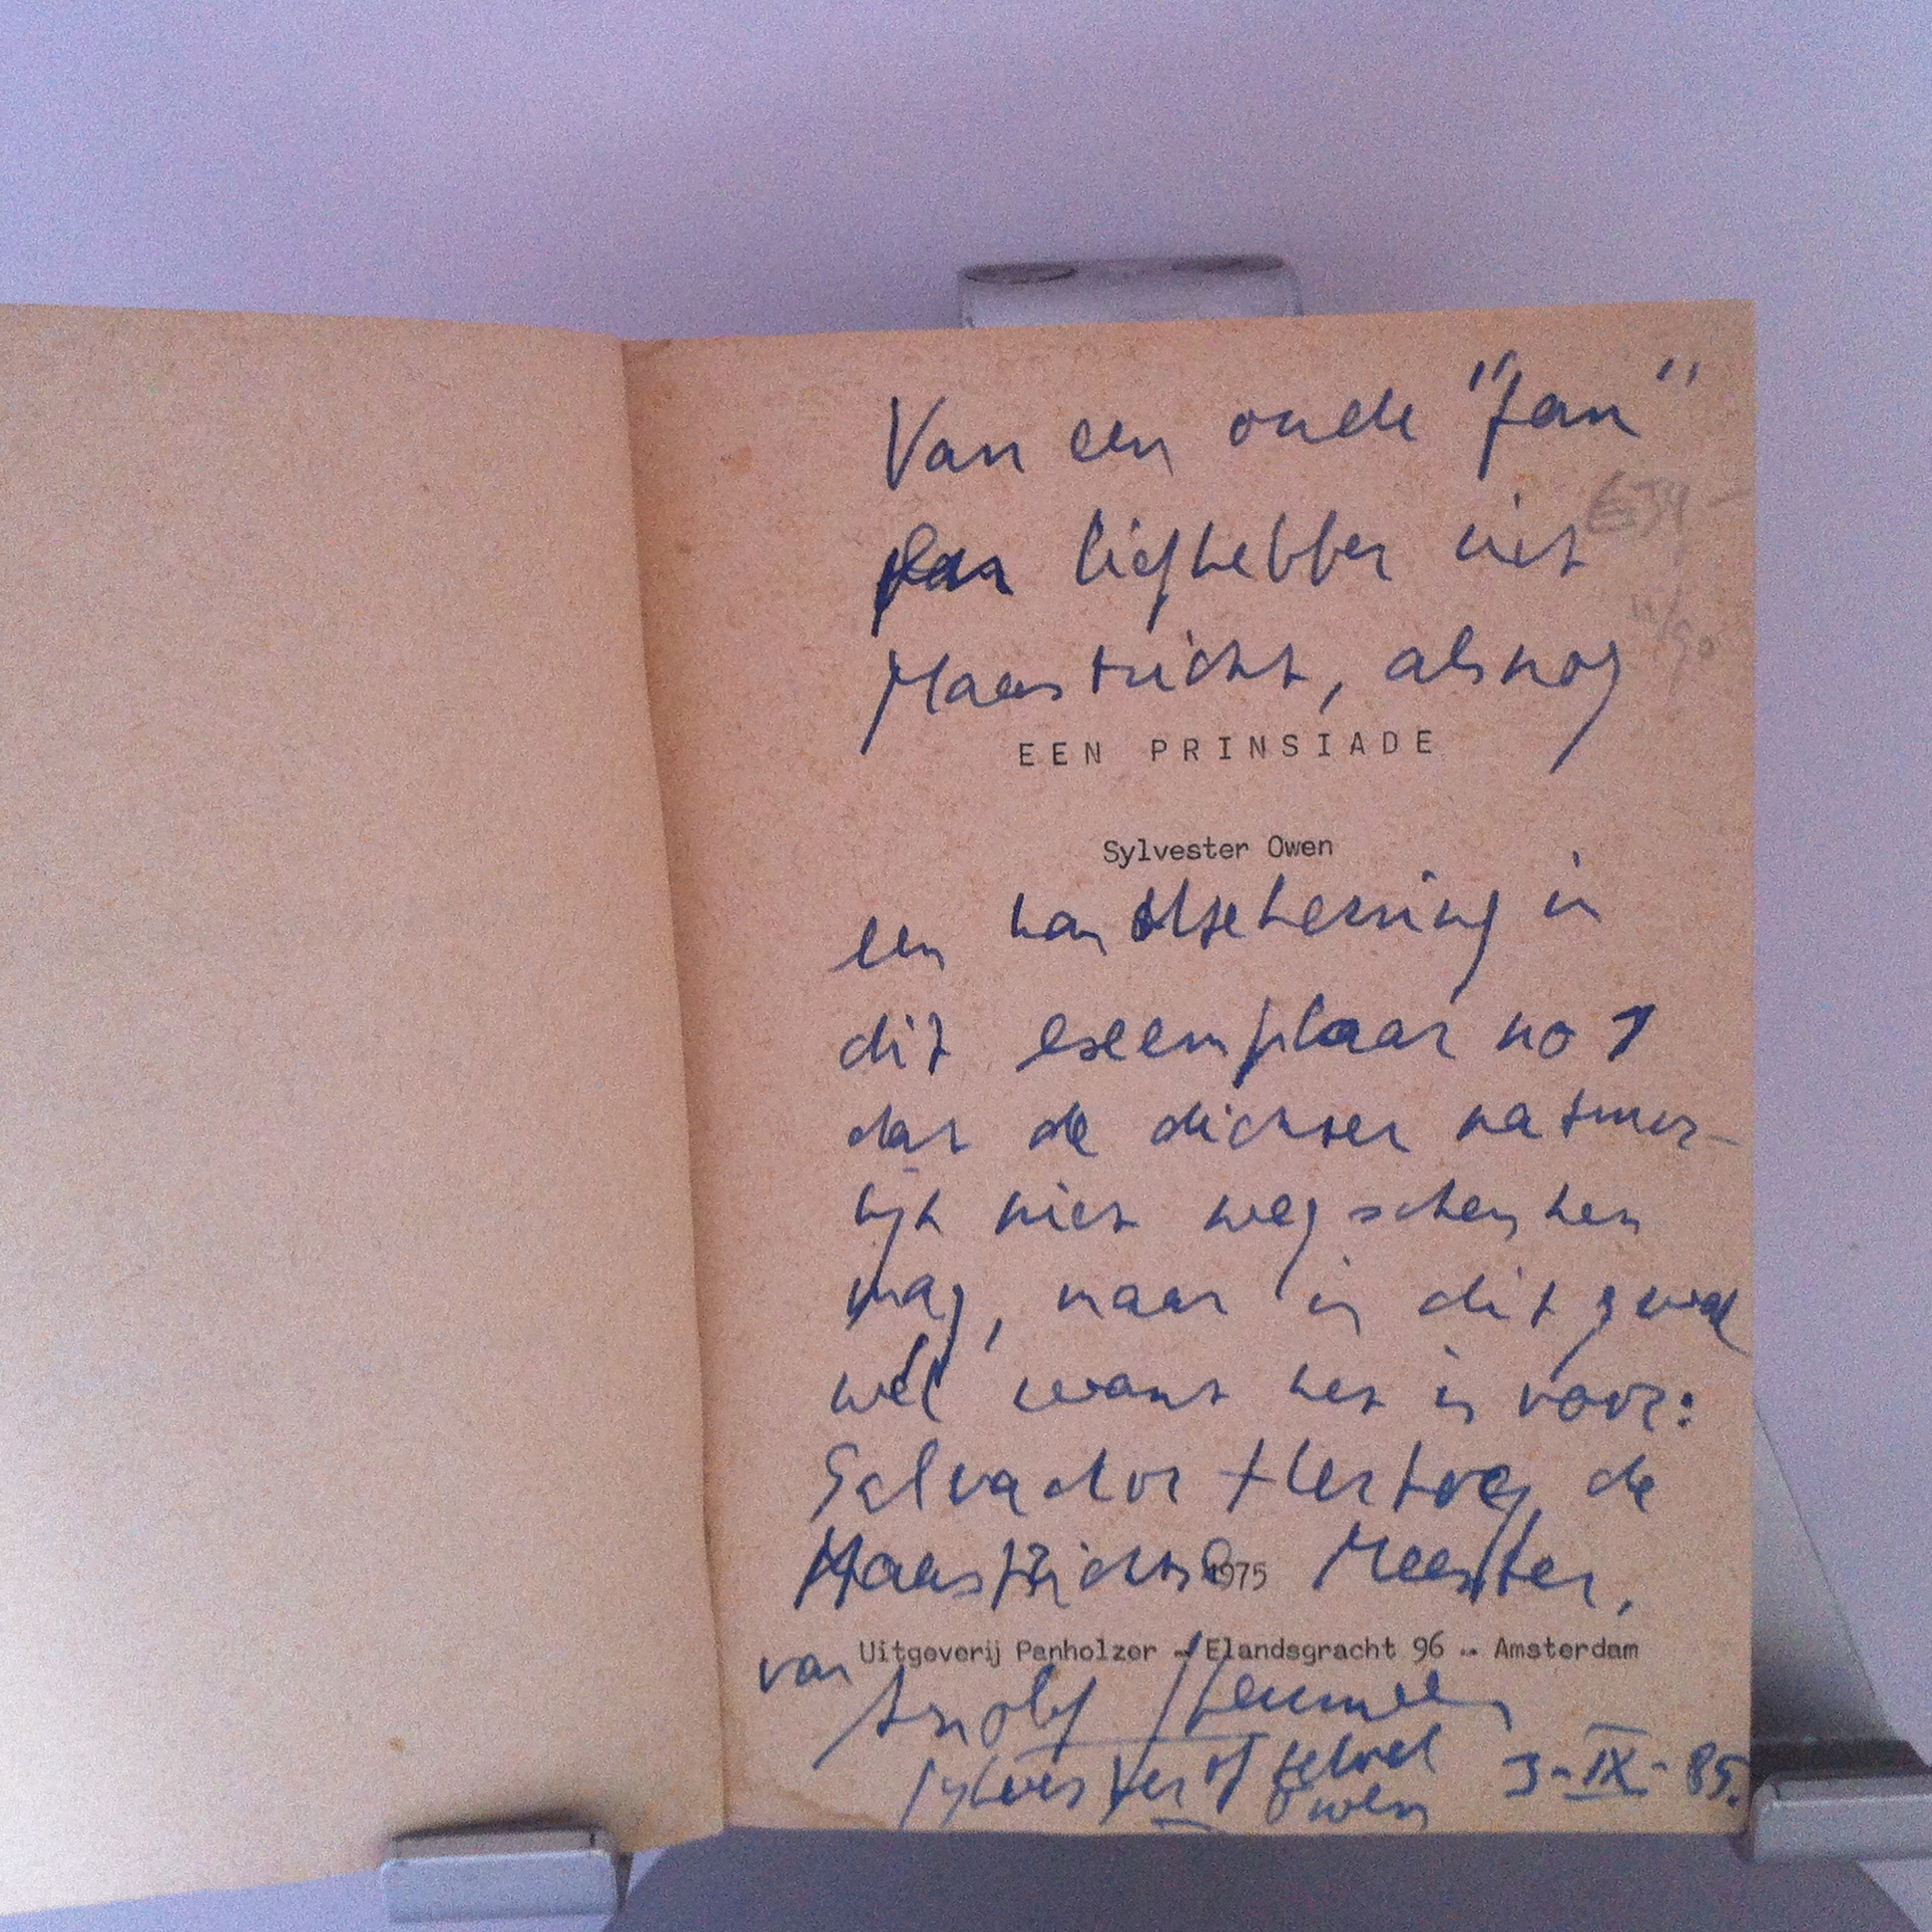 Van een oude "fan"
liefhebber uit
Maastricht, alsnog
EEN PRINSIADE
Sylvester Owen
een handtekening in
dit exemplaar no 1
dat de dichter natuur-
lijk niet weg schenken
mag, maar in dit geval
wel want het is voor:
Salvador Hertog, de
Maastrichtse Meester,
1975
Uitgeverij Panholzer - Elandsgracht 96 - Amsterdam
van
Sylvester Owen 3-IX-85.